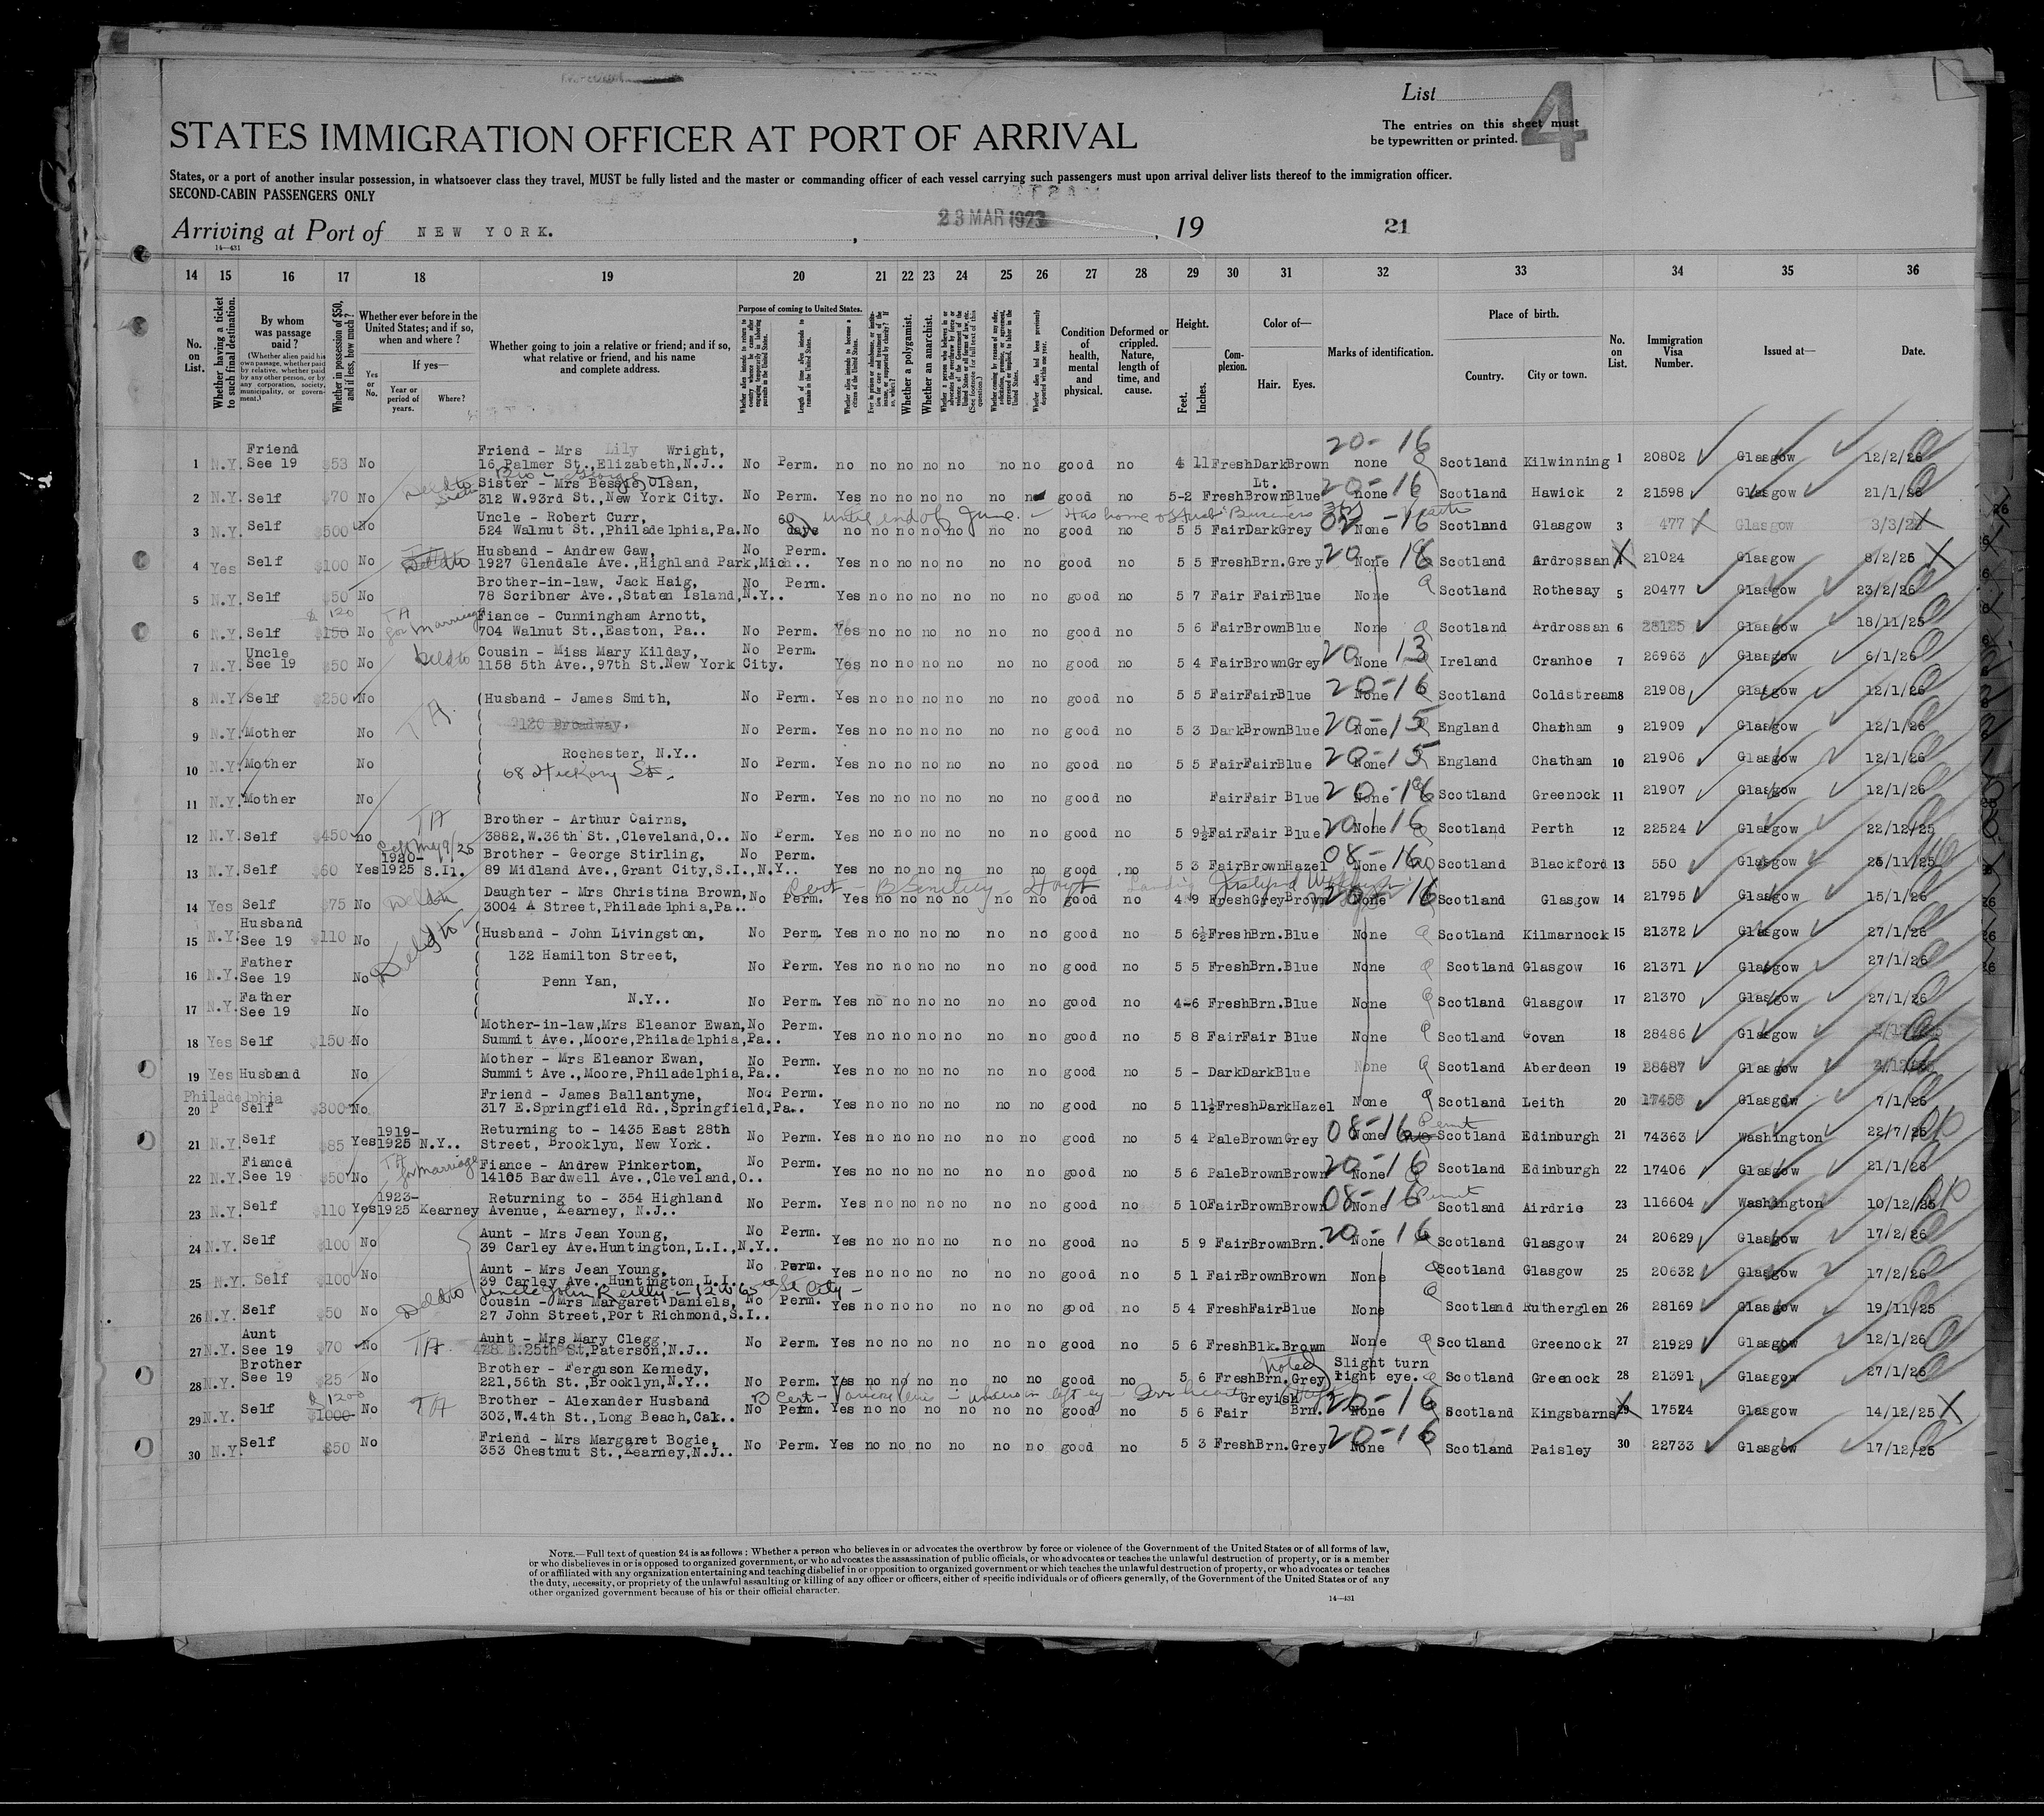 List
4
The entries on this sheet must
be typewritten or printed.
STATES IMMIGRATION OFFICER AT PORT OF ARRIVAL
States, or a port of another insular possession, in whatsoever class they travel, MUST be fully listed and the master or commanding officer of each vessel carrying such passengers must upon arrival deliver lists thereof to the immigration officer.
SECOND-CABIN PASSENGERS ONLY
Arriving at Port of NEW YORK. , 23 MAR 1923 , 19 21
14—431
14 15 16 17 18 19 20 21 22 23 24 25 26 27 28 29 30 31 32 33 34 35 36
No. on List.
Whether having a ticket to such final destination.
By whom was passage paid?
(Whether alien paid his own passage, whether paid by relative, whether paid by any other person, or by any corporation, society, municipality, or government.)
Whether in possession of $50, and if less, how much?
Whether ever before in the United States; and if so, when and where?
Yes or No.
If yes—
Year or period of years.
Where?
Whether going to join a relative or friend; and if so, what relative or friend, and his name and complete address.
Purpose of coming to United States.
Length of time alien intends to remain in the United States.
Whether alien intends to become a citizen of the United States.
Whether a polygamist.
Whether an anarchist.
Condition of health, mental and physical.
Deformed or crippled. Nature, length of time, and cause.
Height.
Feet. Inches.
Complexion.
Color of—
Hair. Eyes.
Marks of identification.
Place of birth.
Country. City or town.
No. on List.
Immigration Visa Number.
Issued at—
Date.
Friend Friend - Mrs Lily Wright, 20-16
1 N.Y. See 19 $53 No 16 Palmer St.,Elizabeth,N.J.. No Perm. no no no no no no no good no 4 11 Fresh Dark Brown none Scotland Kilwinning 1 20802 Glasgow 12/2/26
Sister - Mrs Bessie Olsan, Lt. 20-16
2 N.Y. Self $70 No 312 W.93rd St.,New York City. No Perm. Yes no no no no no no good no 5-2 Fresh Brown Blue none Scotland Hawick 2 21598 Glasgow 21/1/26
Uncle - Robert Curr, 60 until end of June. Has home Business
3 N.Y. Self $500 No 524 Walnut St.,Philadelphia,Pa. No days no no no no no no no good no 5 5 Fair Dark Grey None Scotland Glasgow 3 477 Glasgow 3/3/26
Husband - Andrew Gaw, No Perm.
4 Yes Self $100 No 1927 Glendale Ave.,Highland Park,Mich.. Yes no no no no no no good no 5 5 Fresh Brn. Grey None Scotland Ardrossan 21024 Glasgow 8/2/26
Brother-in-law, Jack Haig, No Perm.
5 N.Y. Self $50 No 78 Scribner Ave.,Staten Island,N.Y.. Yes no no no no no no good no 5 7 Fair Fair Blue None Scotland Rothesay 5 20477 Glasgow 23/2/26
$120 TA for marriage Fiance - Cunningham Arnott,
6 N.Y. Self $150 No 704 Walnut St.,Easton, Pa.. No Perm. Yes no no no no no no good no 5 6 Fair Brown Blue None Scotland Ardrossan 6 28125 Glasgow 18/11/25
Uncle Cousin - Miss Mary Kilday, No Perm. 20 13
7 N.Y. See 19 $50 No 1158 5th Ave.,97th St.New York City. Yes no no no no no no good no 5 4 Fair Brown Grey None Ireland Cranhoe 7 26963 Glasgow 6/1/26
8 N.Y. Self $250 No (Husband - James Smith, No Perm. Yes no no no no no no good no 5 5 Fair Fair Blue 20-16 None Scotland Coldstream 8 21908 Glasgow 12/1/26
9 N.Y. Mother No TA. 2120 Broadway, No Perm. Yes no no no no no no good no 5 3 Dark Brown Blue 20-15 None England Chatham 9 21909 Glasgow 12/1/26
Rochester, N.Y..
10 N.Y. Mother No 68 Hickory St. No Perm. Yes no no no no no no good no 5 5 Fair Fair Blue 20-15 None England Chatham 10 21906 Glasgow 12/1/26
11 N.Y. Mother No No Perm. Yes no no no no no no good no Fair Fair Blue 20-16 None Scotland Greenock 11 21907 Glasgow 12/1/26
TA Brother - Arthur Cairns,
12 N.Y. Self $450 no 3882,W.36th St.,Cleveland,O.. No Perm. Yes no no no no no no good no 5 9½ Fair Fair Blue 20-16 None Scotland Perth 12 22524 Glasgow 22/12/25
1920- Brother - George Stirling, No Perm. 08-16
13 N.Y. Self $60 Yes 1925 S.I1. 89 Midland Ave., Grant City,S.I.,N.Y.. Yes no no no no no no good no 5 3 Fair Brown Hazel None Scotland Blackford 13 550 Glasgow 25/11/25
Daughter - Mrs Christina Brown, Cert - Senility
14 Yes Self $75 No 3004 A Street,Philadelphia,Pa.. No Perm. Yes no no no no no no good no 4 9 Fresh Grey Brown 20 16 None Scotland Glasgow 14 21795 Glasgow 15/1/26
Husband
15 N.Y. See 19 $110 No (Husband - John Livingston, No Perm. Yes no no no no no no good no 5 6½ Fresh Brn. Blue None Scotland Kilmarnock 15 21372 Glasgow 27/1/26
Father 132 Hamilton Street,
16 N.Y. See 19 No Penn Yan, No Perm. Yes no no no no no no good no 5 5 Fresh Brn. Blue None Scotland Glasgow 16 21371 Glasgow 27/1/26
Father N.Y..
17 N.Y. See 19 No No Perm. Yes no no no no no no good no 4-6 Fresh Brn. Blue None Scotland Glasgow 17 21370 Glasgow 27/1/26
Mother-in-law,Mrs Eleanor Ewan, No Perm.
18 Yes Self $150 No Summit Ave.,Moore,Philadelphia,Pa.. Yes no no no no no no good no 5 8 Fair Fair Blue None Scotland Govan 18 28486 Glasgow
Mother - Mrs Eleanor Ewan, No Perm.
19 Yes Husband No Summit Ave.,Moore,Philadelphia,Pa.. Yes no no no no no no good no 5 - Dark Dark Blue None Scotland Aberdeen 19 28487 Glasgow
Philadelphia Friend - James Ballantyne, No Perm.
20 P Self $300 No 317 E.Springfield Rd.,Springfield,Pa.. Yes no no no no no no good no 5 11½ Fresh Dark Hazel None Scotland Leith 20 17458 Glasgow 7/1/26
1919- Returning to - 1435 East 28th 08-16 Permit
21 N.Y. Self $85 Yes 1925 N.Y.. Street, Brooklyn, New York. No Perm. Yes no no no no no no good no 5 4 Pale Brown Grey None Scotland Edinburgh 21 74363 Washington 22/7/25
Fiance TA for marriage Fiance - Andrew Pinkerton, No Perm. 20-16
22 N.Y. See 19 $50 No 14105 Bardwell Ave.,Cleveland,O.. Yes no no no no no no good no 5 6 Pale Brown Brown None Scotland Edinburgh 22 17406 Glasgow 21/1/26
1923- Returning to - 354 Highland 08-16 Permit
23 N.Y. Self $110 Yes 1925 Kearney Avenue, Kearney, N.J.. No Perm. Yes no no no no no no good no 5 10 Fair Brown Brown None Scotland Airdrie 23 116604 Washington 10/12/25
Aunt - Mrs Jean Young, No Perm. 20-16
24 N.Y. Self $100 No 39 Carley Ave.Huntington,L.I.,N.Y.. Yes no no no no no no good no 5 9 Fair Brown Brn. None Scotland Glasgow 24 20629 Glasgow 17/2/26
Aunt - Mrs Jean Young, No Perm.
25 N.Y. Self $100 No 39 Carley Ave.,Huntington,L.I., Yes no no no no no no good no 5 1 Fair Brown Brown None Scotland Glasgow 25 20632 Glasgow 17/2/26
Uncle John Reilly - 12 W 65 St City -
Cousin - Mrs Margaret Daniels, No Perm.
26 N.Y. Self $50 No 27 John Street,Port Richmond,S.I.. Yes no no no no no no good no 5 4 Fresh Fair Blue None Scotland Rutherglen 26 28169 Glasgow 19/11/25
Aunt Aunt - Mrs Mary Clegg,
27 N.Y. See 19 $70 No TA. 428 E.25th St,Paterson,N.J.. No Perm. Yes no no no no no no good no 5 6 Fresh Blk. Brown None Scotland Greenock 27 21929 Glasgow 12/1/26
Brother Brother - Ferguson Kennedy, Noted Slight turn
28 N.Y. See 19 $25 No 221,56th St.,Brooklyn,N.Y.. No Perm. Yes no no no no no no good no 5 6 Fresh Brn. Grey right eye. Scotland Greenock 28 21391 Glasgow 27/1/26
$1200 TA Brother - Alexander Husband B Cert - left eye Greyish 20-16
29 N.Y. Self $1000 No 303,W.4th St.,Long Beach,Cal.. No Perm. Yes no no no no no no good no 5 6 Fair Brn. None Scotland Kingsbarns 29 17524 Glasgow 14/12/25
Friend - Mrs Margaret Bogie, 20-16
30 N.Y. Self $50 No 353 Chestnut St.,Kearney,N.J.. No Perm. Yes no no no no no no good no 5 3 Fresh Brn. Grey None Scotland Paisley 30 22733 Glasgow 17/12/25
NOTE.—Full text of question 24 is as follows: Whether a person who believes in or advocates the overthrow by force or violence of the Government of the United States or of all forms of law,
or who disbelieves in or is opposed to organized government, or who advocates the assassination of public officials, or who advocates or teaches the unlawful destruction of property, or is a member
of or affiliated with any organization entertaining and teaching disbelief in or opposition to organized government or which teaches the unlawful destruction of property, or who advocates or teaches
the duty, necessity, or propriety of the unlawful assaulting or killing of any officer or officers, either of specific individuals or of officers generally, of the Government of the United States or of any
other organized government because of his or their official character.
14—431